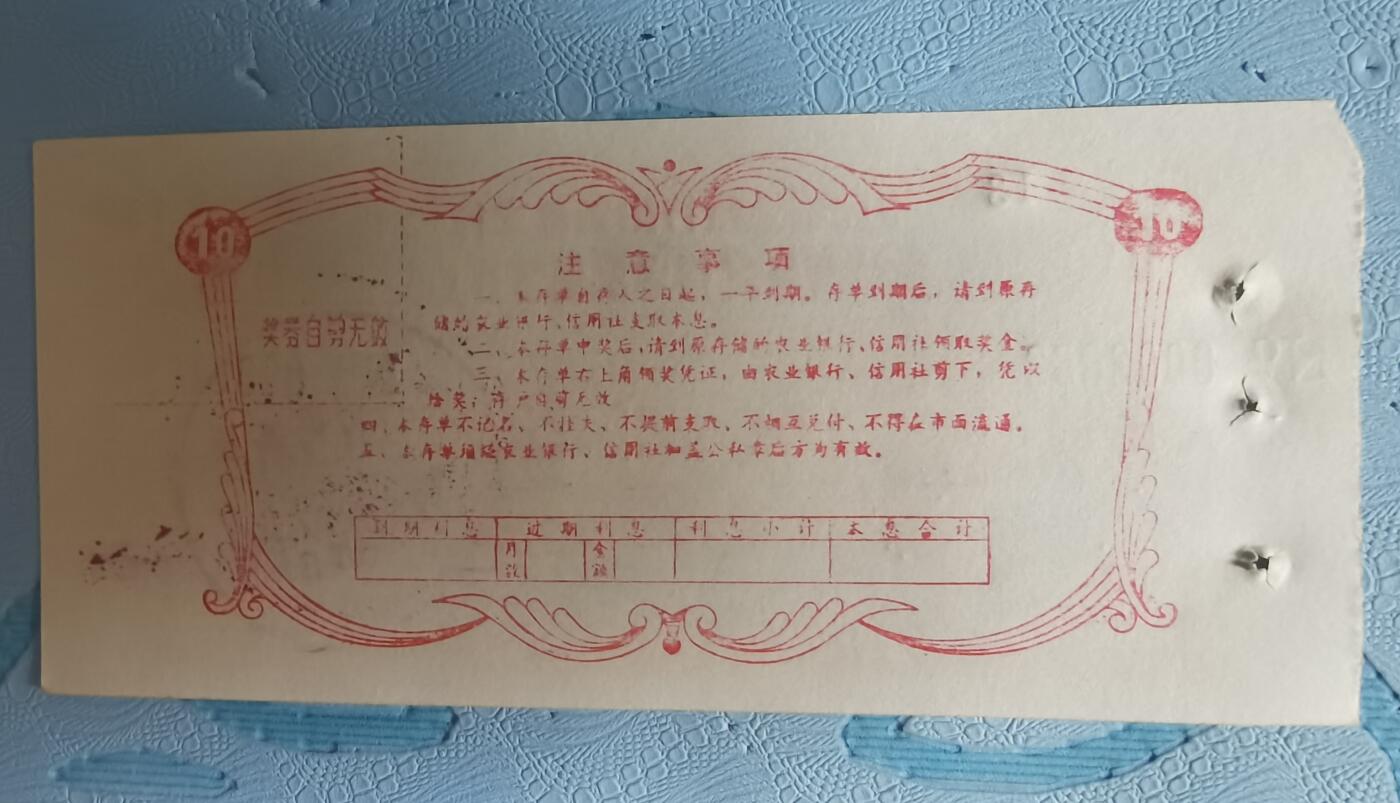 10
10
注意事项
一、本存单自存入之日起，一年到期。存单到期后，请到原存
储的农业银行、信用社支取本息。
奖券自剪无效
二、本存单中奖后，请到原存储的农业银行、信用社领取奖金。
三、本存单右上角领奖凭证，由农业银行、信用社剪下，凭以
给奖；存户自剪无效
四、本存单不记名、不挂失、不提前支取、不相互兑付、不得在市面流通。
五、本存单须经农业银行、信用社加盖公私章后方为有效。
到期利息 过期利息 利息小计 本息合计
月数 金额